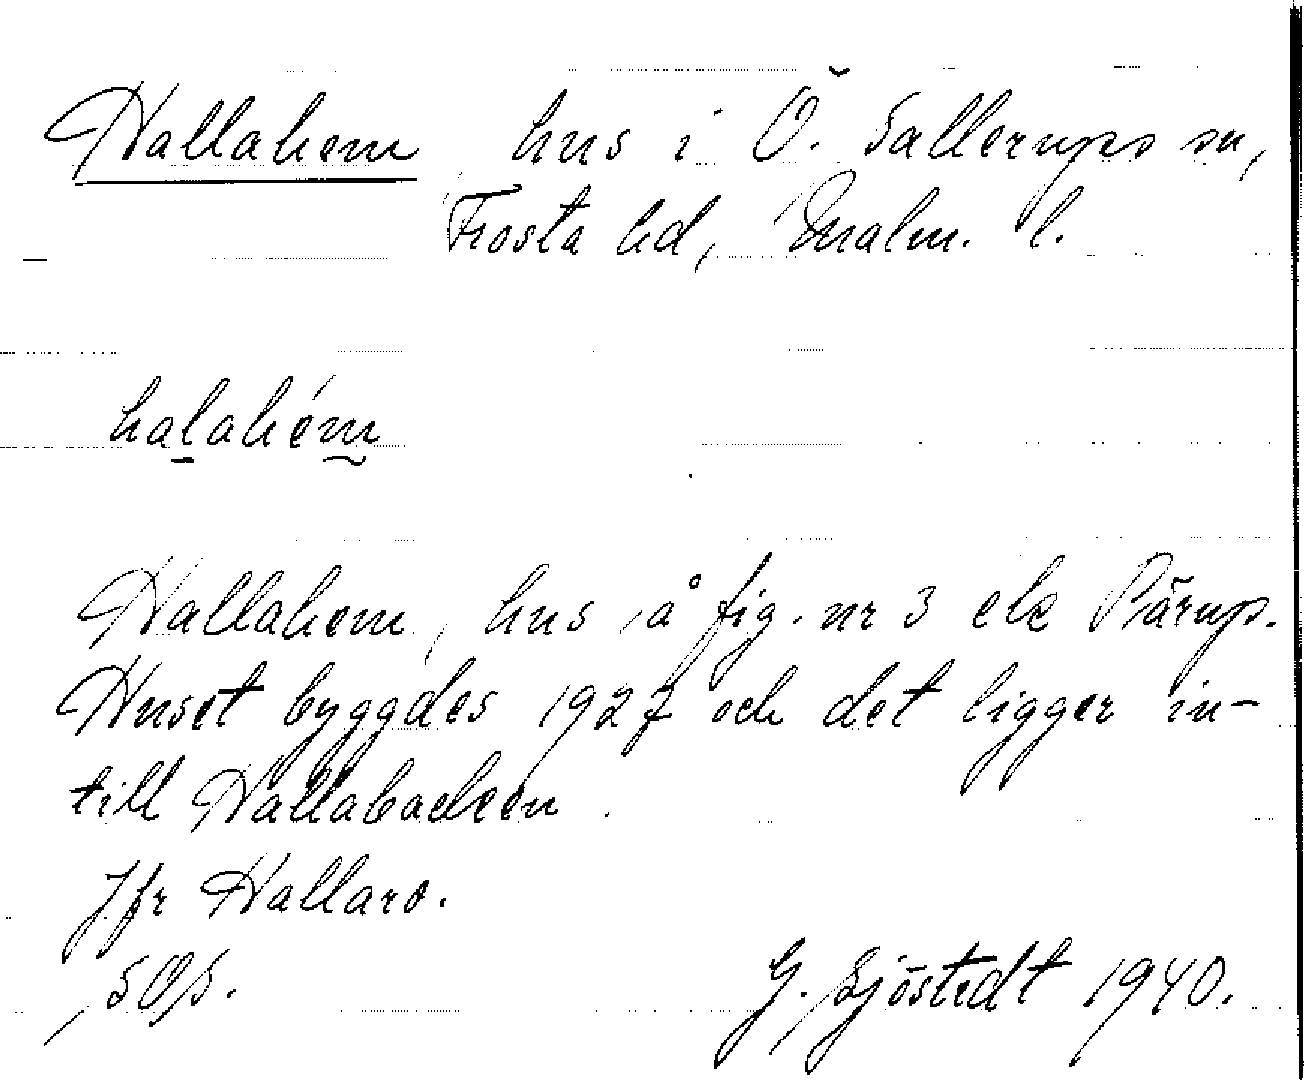 Hallahem hus i Ö. Sallerups sn,
Frosta hd, Malm. l.
halahém
Hallahem, hus å fig. nr 3 ek Pärup.
Huset byggdes 1927 och det ligger in-
till Hallabacken.
Jfr Hallaro.
SOS.
G. Sjöstedt 1940.